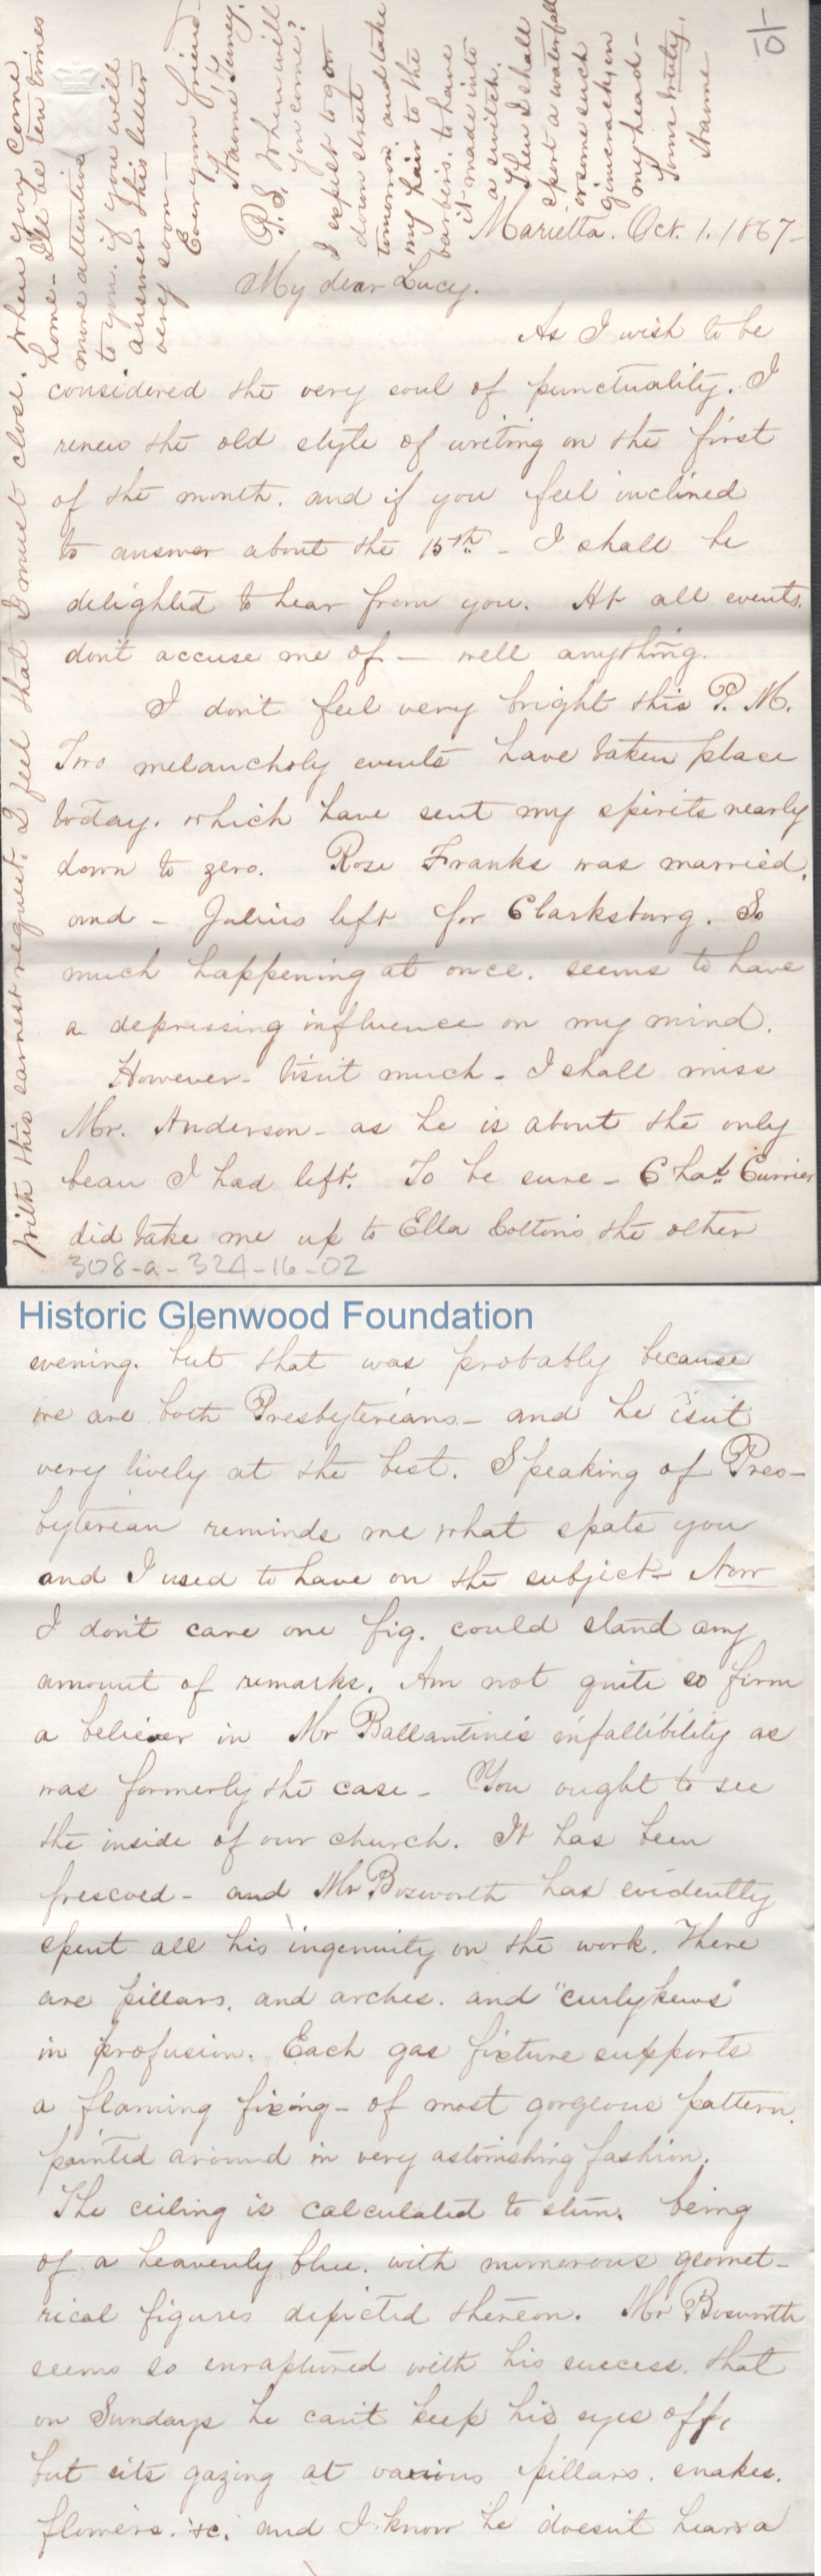 Marietta. Oct. 1. 1867-
My dear Lucy.
As I wish to be
considered the very soul of punctuality. I
renew the old style of writing on the first
of the month. and if you feel inclined
to answer about the 15th - I shall be
delighted to hear from you. At all events.
don't accuse me of - well anything.
I don't feel very bright this P. M.
Two melancholy events have taken place
today. which have sent my spirits nearly
down to zero. Rose Franks was married.
and - Julius left for Clarksburg. So
much happening at once. seems to have
a depressing influence on my mind.
However - tisn't much - I shall miss
Mr. Anderson - as he is about the only
beau I had left. To be sure - Chas Currier
did take me up to Ella Cotton's the other
308-a-324-16-02
Historic Glenwood Foundation
evening. but that was probably because
we are both Presbyterians - and he isn't
very lively at the best. Speaking of Pres-
byterian reminds me what spats you
and I used to have on the subject - Now
I don't care one fig. could stand any
amount of remarks. Am not quite so firm
a believer in Mr Ballantine's infallibility as
was formerly the case - You ought to see
the inside of our church. It has been
frescoed - and Mr Bosworth has evidently
spent all his ingenuity on the work. There
are pillars. and arches. and "curlykews"
in profusion. Each gas fixture supports
a flaming fixing - of most gorgeous pattern.
painted around in very astonishing fashion.
The ceiling is calculated to stun. being
of a heavenly blue. with numerous geomet-
rical figures depicted thereon. Mr Bosworth
seems so enraptured with his success. that
on Sundays he can't keep his eyes off,
but sits gazing at various pillars. snakes.
flowers. &c. and I know he doesn't hear a
With this earnest request. I feel that I must close. When you come
home - I'll be ten times
more attentive
to you. if you will
answer this letter
very soon -
Ever your friend -
Nannie Turney.
P.S. When will
you come?
I expect to go on
down street
tomorrow and take
my hair to the
barber's. to have
it made into
a switch.
Then I shall
sport a waterfall
or some such
gimcrack, on
my head -
Yours truly,
Nannie
10/1